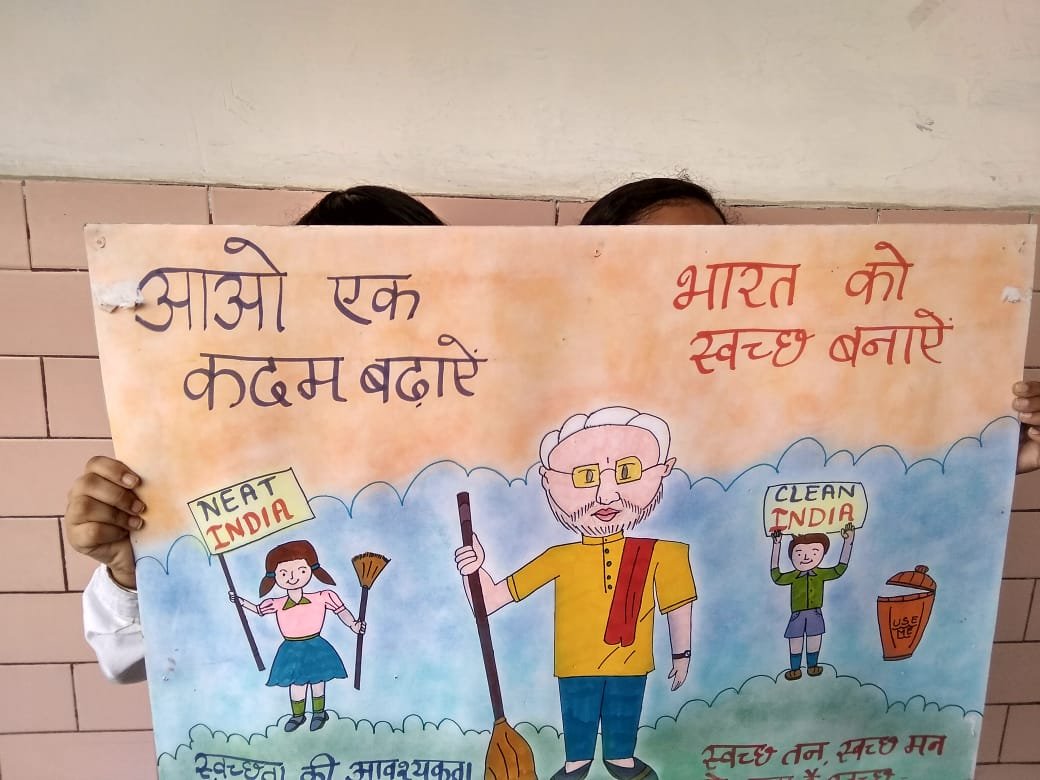 आओ एक
कदम बढ़ाऐं
भारत को
स्वच्छ बनाऐं
NEAT
INDIA
CLEAN
INDIA
USE
ME
स्वच्छता की आवश्यकता
स्वच्छ तन, स्वच्छ मन